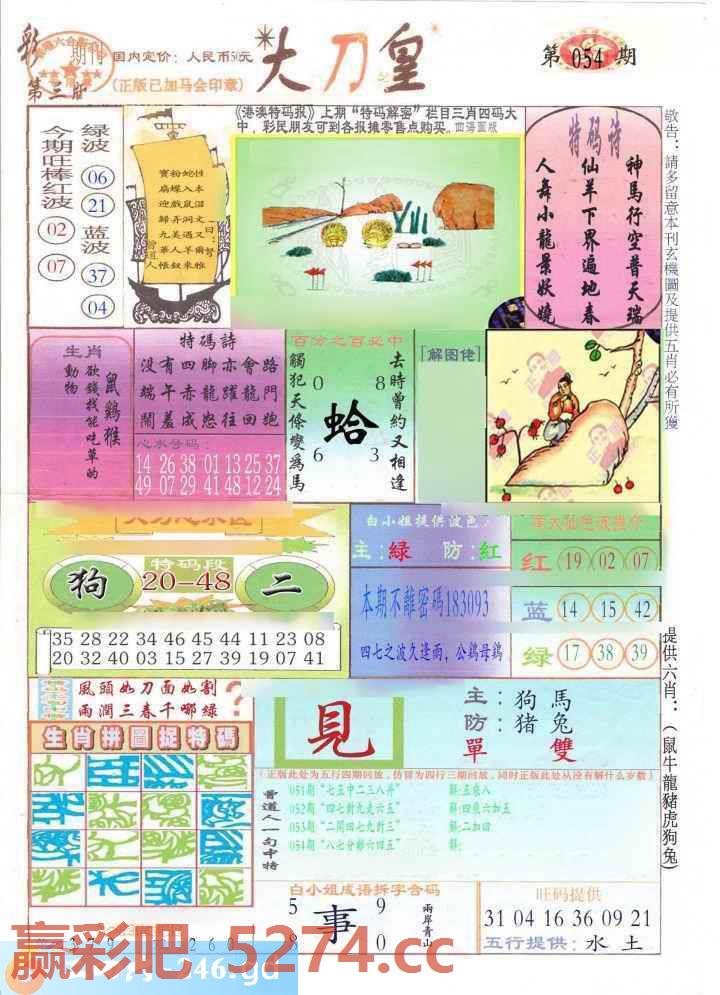 彩 期刊
第三版
国内定价：人民币50元
(正版已加马会印章)
大刀皇
第 054 期
今期旺棒红波
02
07
绿波
06
21
蓝波
37
04
《港澳特码报》上期“特码解密”栏目三肖四码大
中，彩民朋友可到各报摊零售点购买。四海图版
特码诗
神馬行空普天瑞
仙羊下界遍地春
人舞小龍景妖嬈
敬告：請多留意本刊玄機圖及提供五肖必有所獲
生肖
欲錢找能吃草的動物
鼠鷄猴
特碼詩
没有四脚亦會路
端午赤龍躍龍門
鬧羞成怒往回跑
心水号码：
14 26 38 01 13 25 37
49 07 29 41 48 12 24
百分之百必中
觸犯天條變爲馬
去時曾約又相逢
0 8
蛤
6 3
[解图佬]
特码段
狗
20-48
二
35 28 22 34 46 45 44 11 23 08
20 32 40 03 15 27 39 19 07 41
白小姐提供波色：
主:绿 防:红
本期不離密碼183093
四七之波久逢雨，公鷄母鷄
红 19 02 07
蓝 14 15 42
绿 17 38 39
提供六肖：（鼠牛龍豬虎狗兔）
風頭如刀面如割
雨潤三春千哪緑
?
生肖拼圖捉特碼
見
主：狗 馬
防：猪 兔
單 雙
(正版此处为五行四期回放，仿冒为四行三期回放，同时正版此处从没有解什么岁数)
曾道人一句中特
051期“七五中二三八开” 解:五乘八
052期“四七對九走六五” 解:四乘六加五
053期“二開四七九對三” 解:二加四
054期“八七分彩六四五” 解:
白小姐成语拆字合码
5 9
事
8 0
兩岸青山
旺码提供
31 04 16 36 09 21
五行提供：水 土
赢彩吧 5274.cc
246.gd